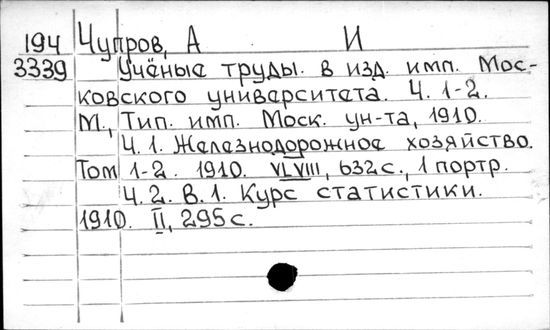 194 Чупров, А И
3339 Учёные труды. в изд. имп. Мос-
ковского университета. Ч. 1-2.
М., Тип. имп. Моск. ун-та, 1910.
Ч. 1. Железнодорожное хозяйство.
Том 1-2. 1910. VLVIII, 632 с., 1 портр.
Ч. 2. В. 1. Курс статистики.
1910. II, 295 с.